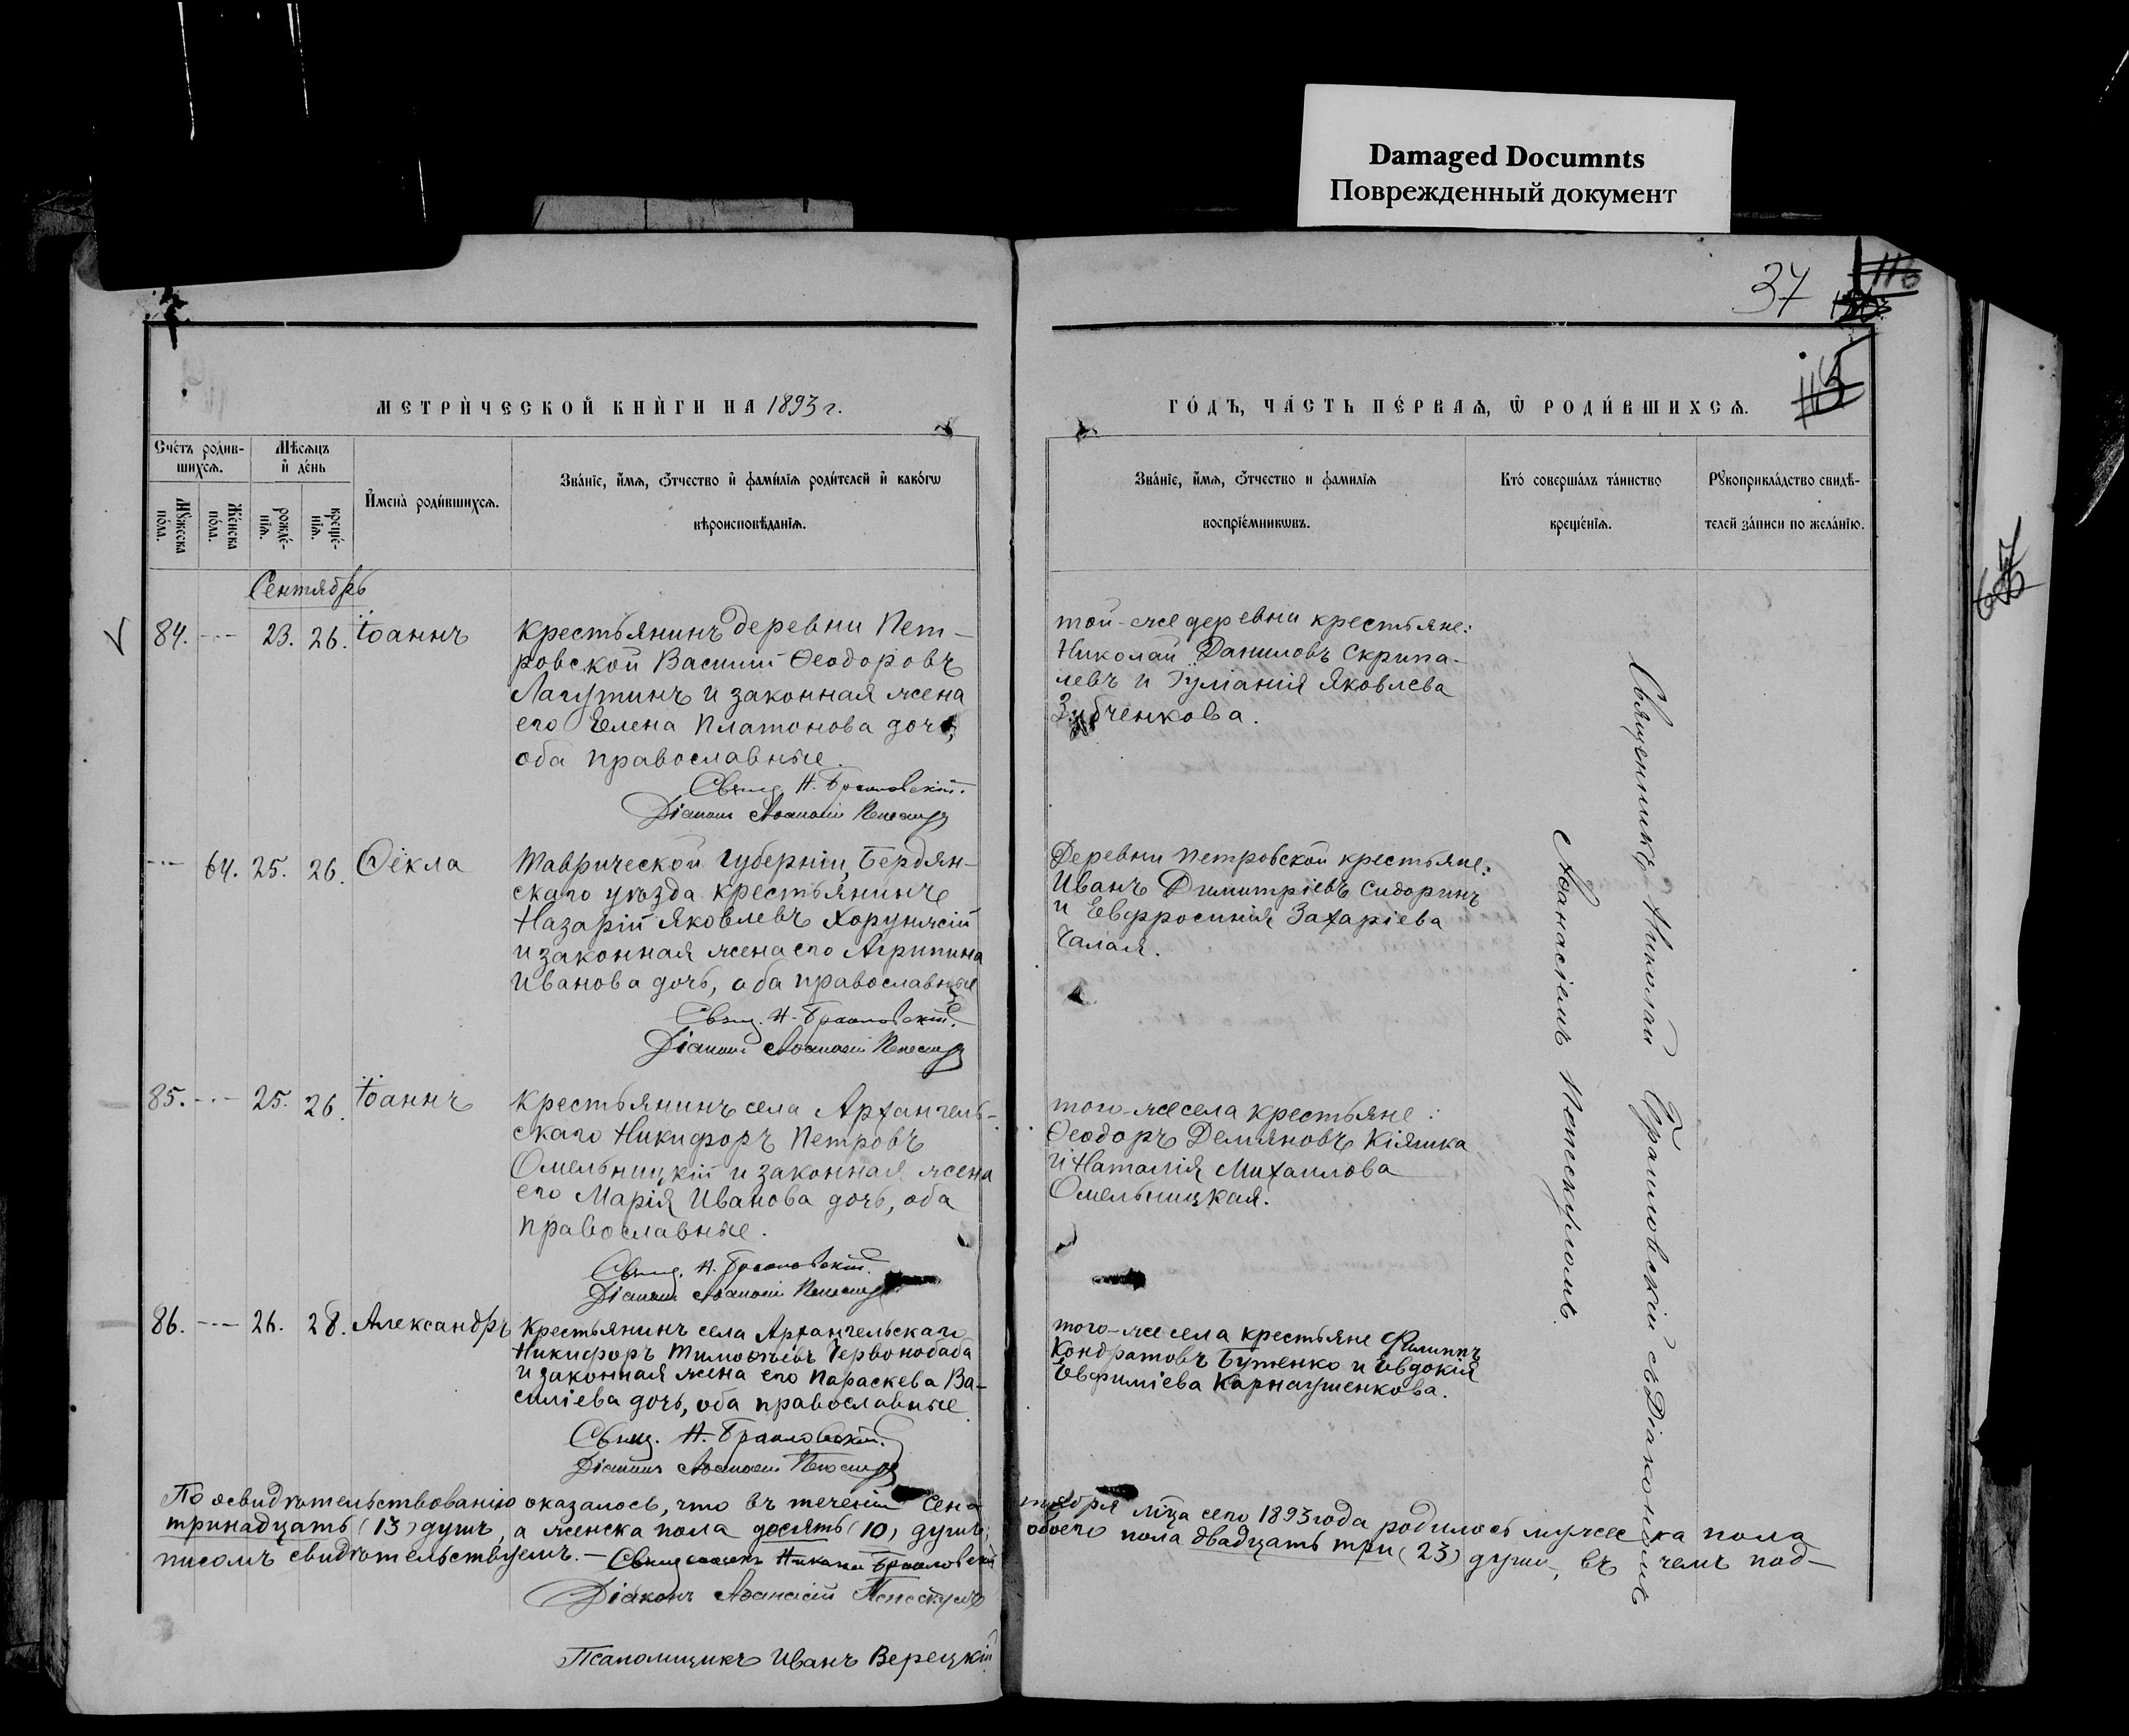 Damaged Documnts
Поврежденный документ
37
МЕТРИ́ЧЕСКОЙ КНИ́ГИ НА 1893 г.
ГО́ДЪ, ЧА́СТЬ ПЕ́РВАѦ, Ѿ РОДИ́ВШИХСѦ.
Сче́тъ роди́в-
шихсѧ.
Мѣ́сѧцъ
и҆ де́нь
Мꙋ́жеска
по́ла.
Же́нска
по́ла.
рожде́-
нїѧ.
креще́-
нїѧ.
И҆мена̀ роди́вшихсѧ.
Зва́нїе, и҆́мѧ, ѻ҆́тчество и҆ фамı́лїѧ роди́телей и҆ како́гѡ
вѣроисповѣ́данїѧ.
Зва́нїе, и҆́мѧ, ѻ҆́тчество и фамилїѧ
воспрїе́мникѡвъ.
Кто́ соверша́лъ та́инство
креще́нїѧ.
Рꙋкоприкла́дство свидѣ́-
телей за́писи по жела́нїю.
Сентябрь
84. - - - 23. 26. Іоаннъ
крестьянинъ деревни Пет-
ровской Василій Ѳеодоровъ
Лагутинъ и законная жена
его Елена Платонова дочь,
оба православные.
Свящ. Н. Браиловскій.
Діаконъ Аѳанасій Пепескулъ
той-же деревни крестьяне:
Николай Даниловъ Скрипа-
левъ и Іуліанія Яковлева
Зубченкова.
- - - 64. 25. 26. Ѳекла
Таврической губерніи, Бердян-
скаго уѣзда крестьянинъ
Назарій Яковлевъ Хорунжій
и законная жена его Агрипина
Иванова дочь, оба православные
Свящ. Н. Браиловскій.
Діаконъ Аѳанасій Пепескулъ
Деревни Петровской крестьяне:
Иванъ Димитріевъ Сидоринъ
и Евфросинія Захаріева
Чалая.
85. - - - 25. 26. Іоаннъ
Крестьянинъ села Архангель-
скаго Никифоръ Петровъ
Омельницкій и законная жена
его Марія Иванова дочь, оба
православные.
Свящ. Н. Браиловскій.
Діаконъ Аѳанасій Пепескулъ
того-же села крестьяне:
Ѳеодоръ Демяновъ Кіяшка
и Наталія Михаилова
Омельницкая.
86. - - - 26. 28. Александръ
Крестьянинъ села Архангельскаго
Никифоръ Тимоѳеевъ Червонобаба
и законная жена его Параскева Ва-
силіева дочь, оба православные
Свящ. Н. Браиловскій.
Діаконъ Аѳанасій Пепескулъ
того-же села крестьяне Филиппъ
Кондратовъ Бутенко и Евдокія
Евфиміева Карнаушенкова.
Священникъ Николай Браиловскій съ Діакономъ
Аѳанасіемъ Пепескуломъ.
По освидѣтельствованію оказалось, что въ теченіи Сентября мѣца сего 1893 года родилось мужеска пола
тринадцать (13) душъ, а женска пола десять (10) душъ, обоего пола двадцать три (23) души, въ чемъ под-
писомъ свидѣтельствуемъ. - Священникъ Николай Браиловскій
Діаконъ Аѳанасій Пепескулъ
Псаломщикъ Иванъ Верецкій